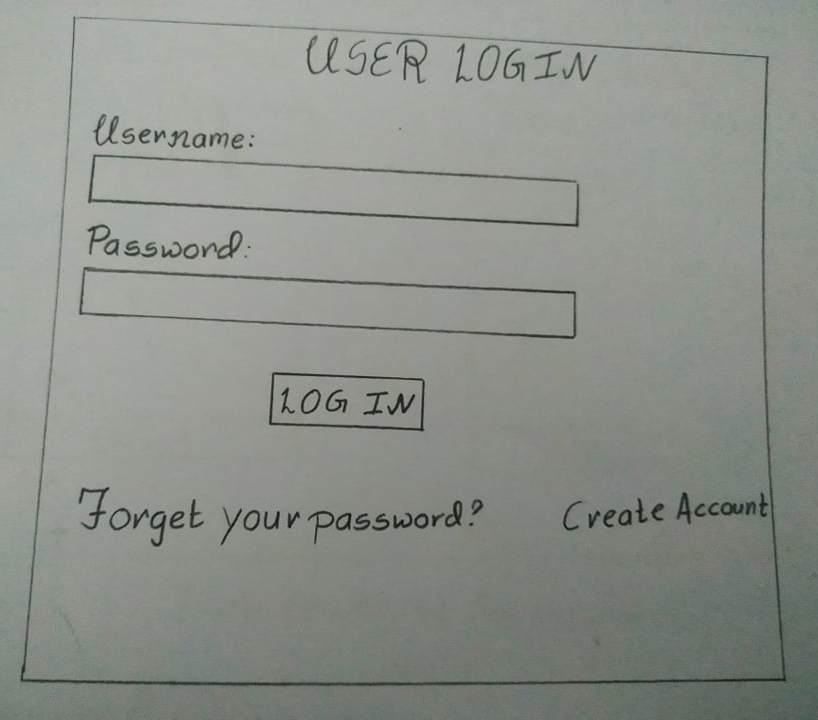 USER LOGIN
Username:
Password:
LOG IN
Forget your password? Create Account